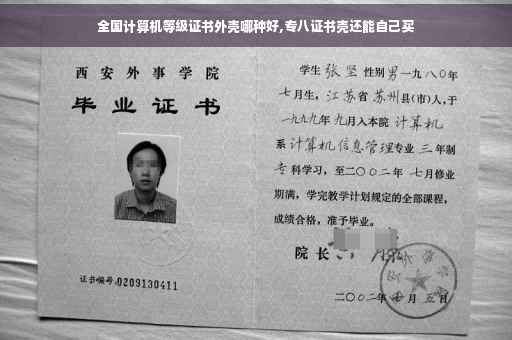 全国计算机等级证书外壳哪种好,专八证书壳还能自己买
西安外事学院
毕业证书
证书编号:0209130411
学生 张坚 性别 男 一九八〇年
七月生, 江苏省 苏州 县(市)人,于
一九九九年 九月入本院 计算机
系 计算机信息管理 专业 三 年制
专科学习,至二〇〇二年 七月修业
期满,学完教学计划规定的全部课程,
成绩合格,准予毕业。
院长
二〇〇二年 月五日